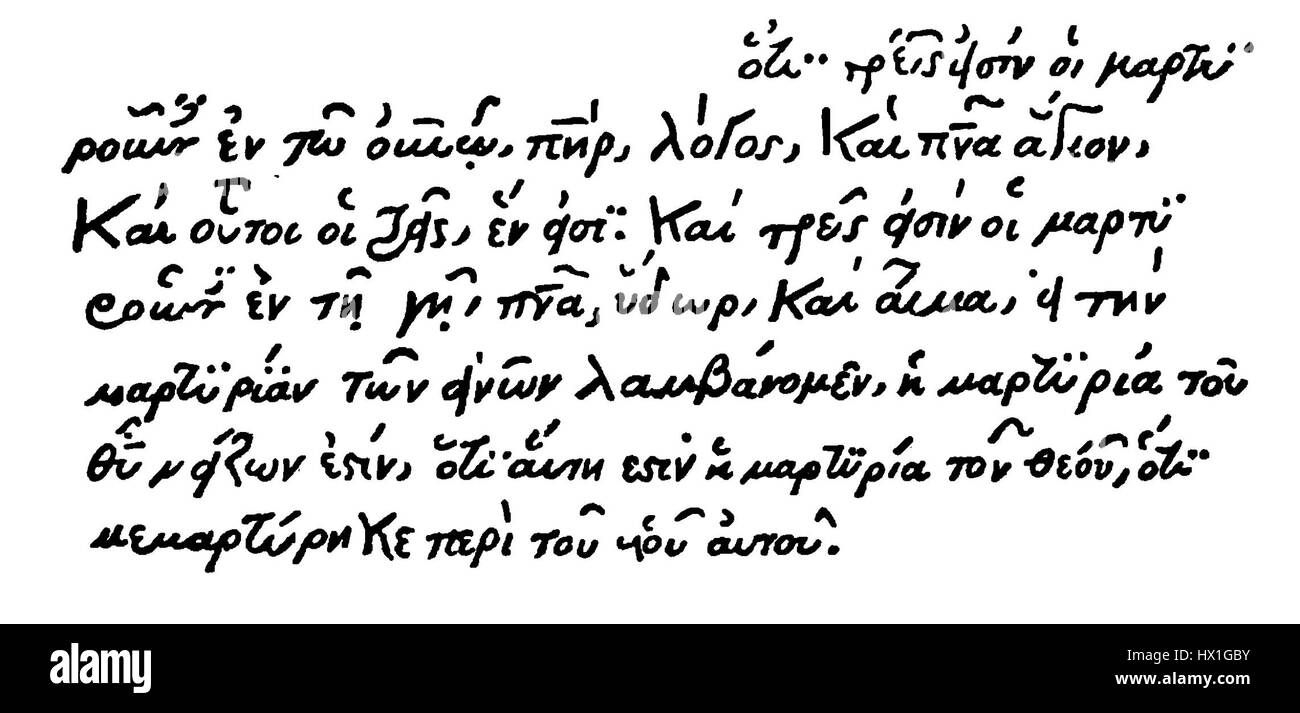 ὅτι τρεῖς εἰσὶν οἱ μαρτυ
ροῦντες ἐν τῶ οὐνῶ, πηρ, λόγος, καὶ πνα ἅγιον,
καὶ οὗτοι οἱ τρεῖς, ἕν εἰσι. καὶ τρεῖς εἰσὶν οἱ μαρτυ
ροῦντες ἐν τῆ γῆ, πνα, ὕδωρ, καὶ αἷμα, εἰ τὴν
μαρτυρίαν τῶν ἀνῶν λαμβάνομεν, ἡ μαρτυρία τοῦ
θῦ μείζων ἐστίν, ὅτι αὕτη εστιν ἡ μαρτυρία τοῦ θεοῦ, ὅτι
μεμαρτύρηκε περὶ τοῦ υἱοῦ αὐτοῦ.
alamy
HX1GBY
www.alamy.com